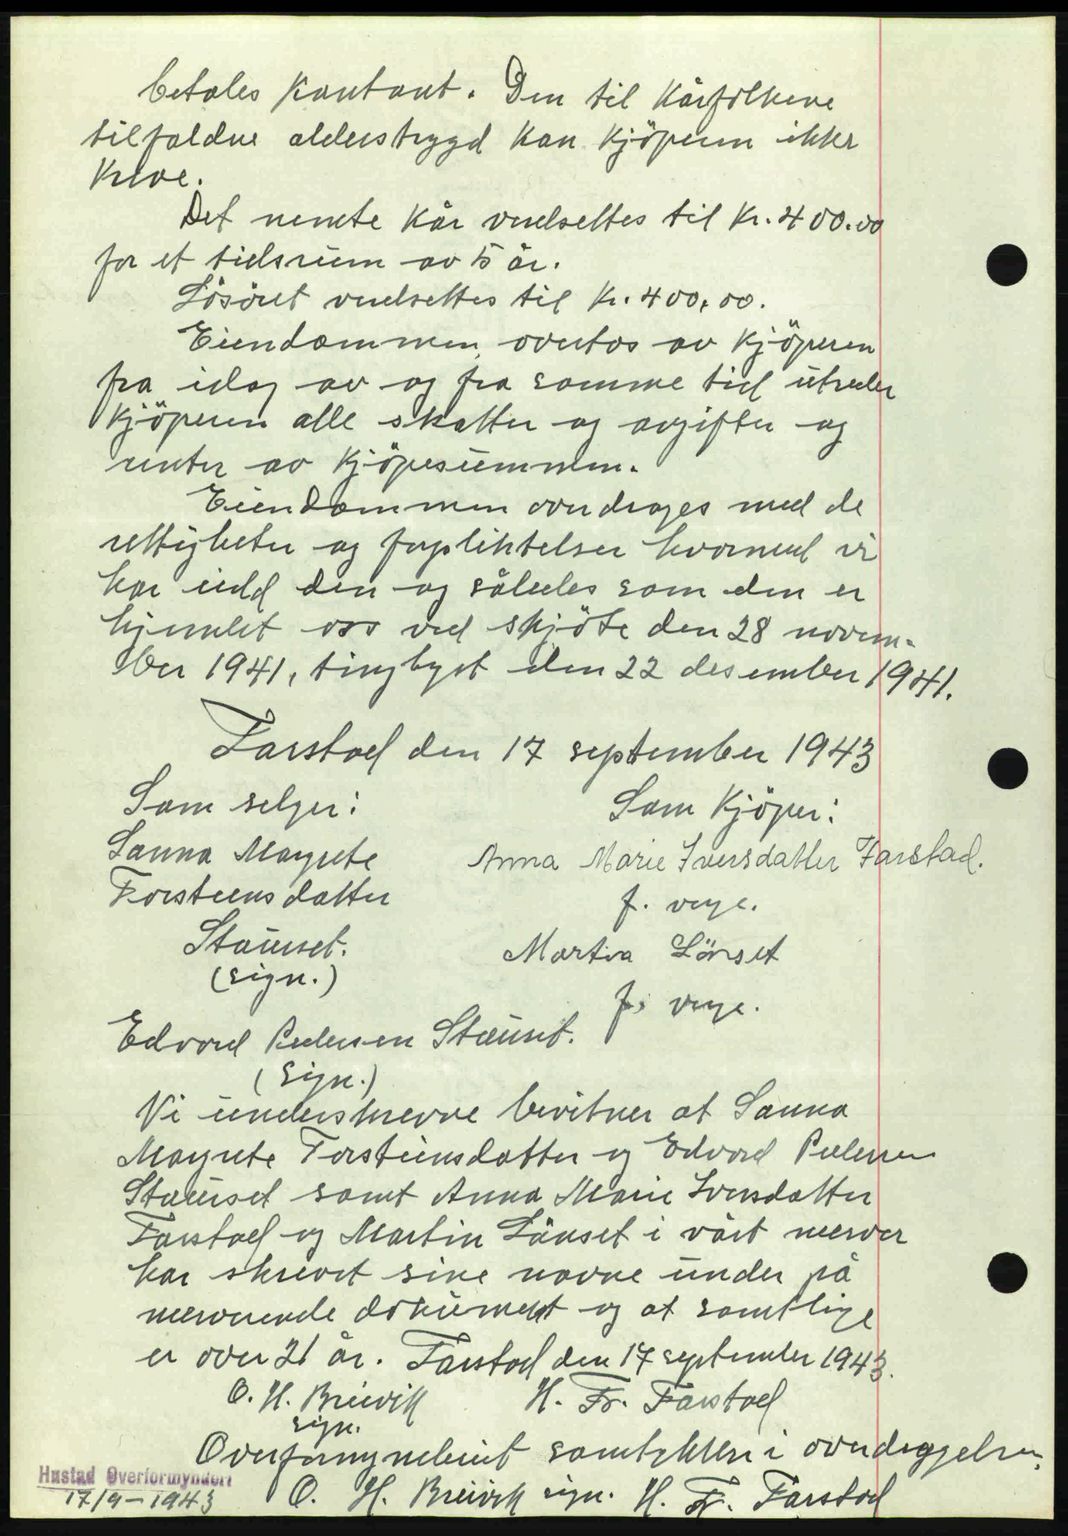 betales kontant. Den til kårfolkene
tilfaldne alderstrygd kan kjöperen ikke
kreve.
Det nevnte kår verdsettes til kr. 400.00
for et tidsrum av 5 år.
Lösöret verdsettes til kr. 400,00.
Eiendommen overtas av kjöperen
fra idag av og fra samme tid utreder
kjöperen alle skatter og avgifter og
renter av kjöpesummen.
Eiendommen overdrages med de
rettigheter og forpliktelser hvormed vi
har eiet den og således som den er
hjemlet oss ved skjöte den 28 novem-
ber 1941, tinglyst den 22 desember 1941.
Farstad den 17 september 1943
Som selger: Som kjöper:
Sanna Magrete Anna Marie Iversdatter Farstad.
Torsteensdatter f. verge.
Stavset. Martin Lönset
(sign.) f. verge.
Edvard Pedersen Stavset.
(sign.)
Vi underskrevne bevitner at Sanna
Magrete Torsteinsdatter og Edvard Pedersen
Stavset samt Anna Marie Iversdatter
Farstad og Martin Lönset i vårt nærvær
har skrevet sine navne under på
nærværende dokument og at samtlige
er over 21 år. Farstad den 17 september 1943.
O. H. Breivik H. Fr. Farstad
sign.
Overformynderiet samtykker i overdragelsen.
Hustad Overformynderi
17/9-1943 O. H. Breivik sign. H. Fr. Farstad